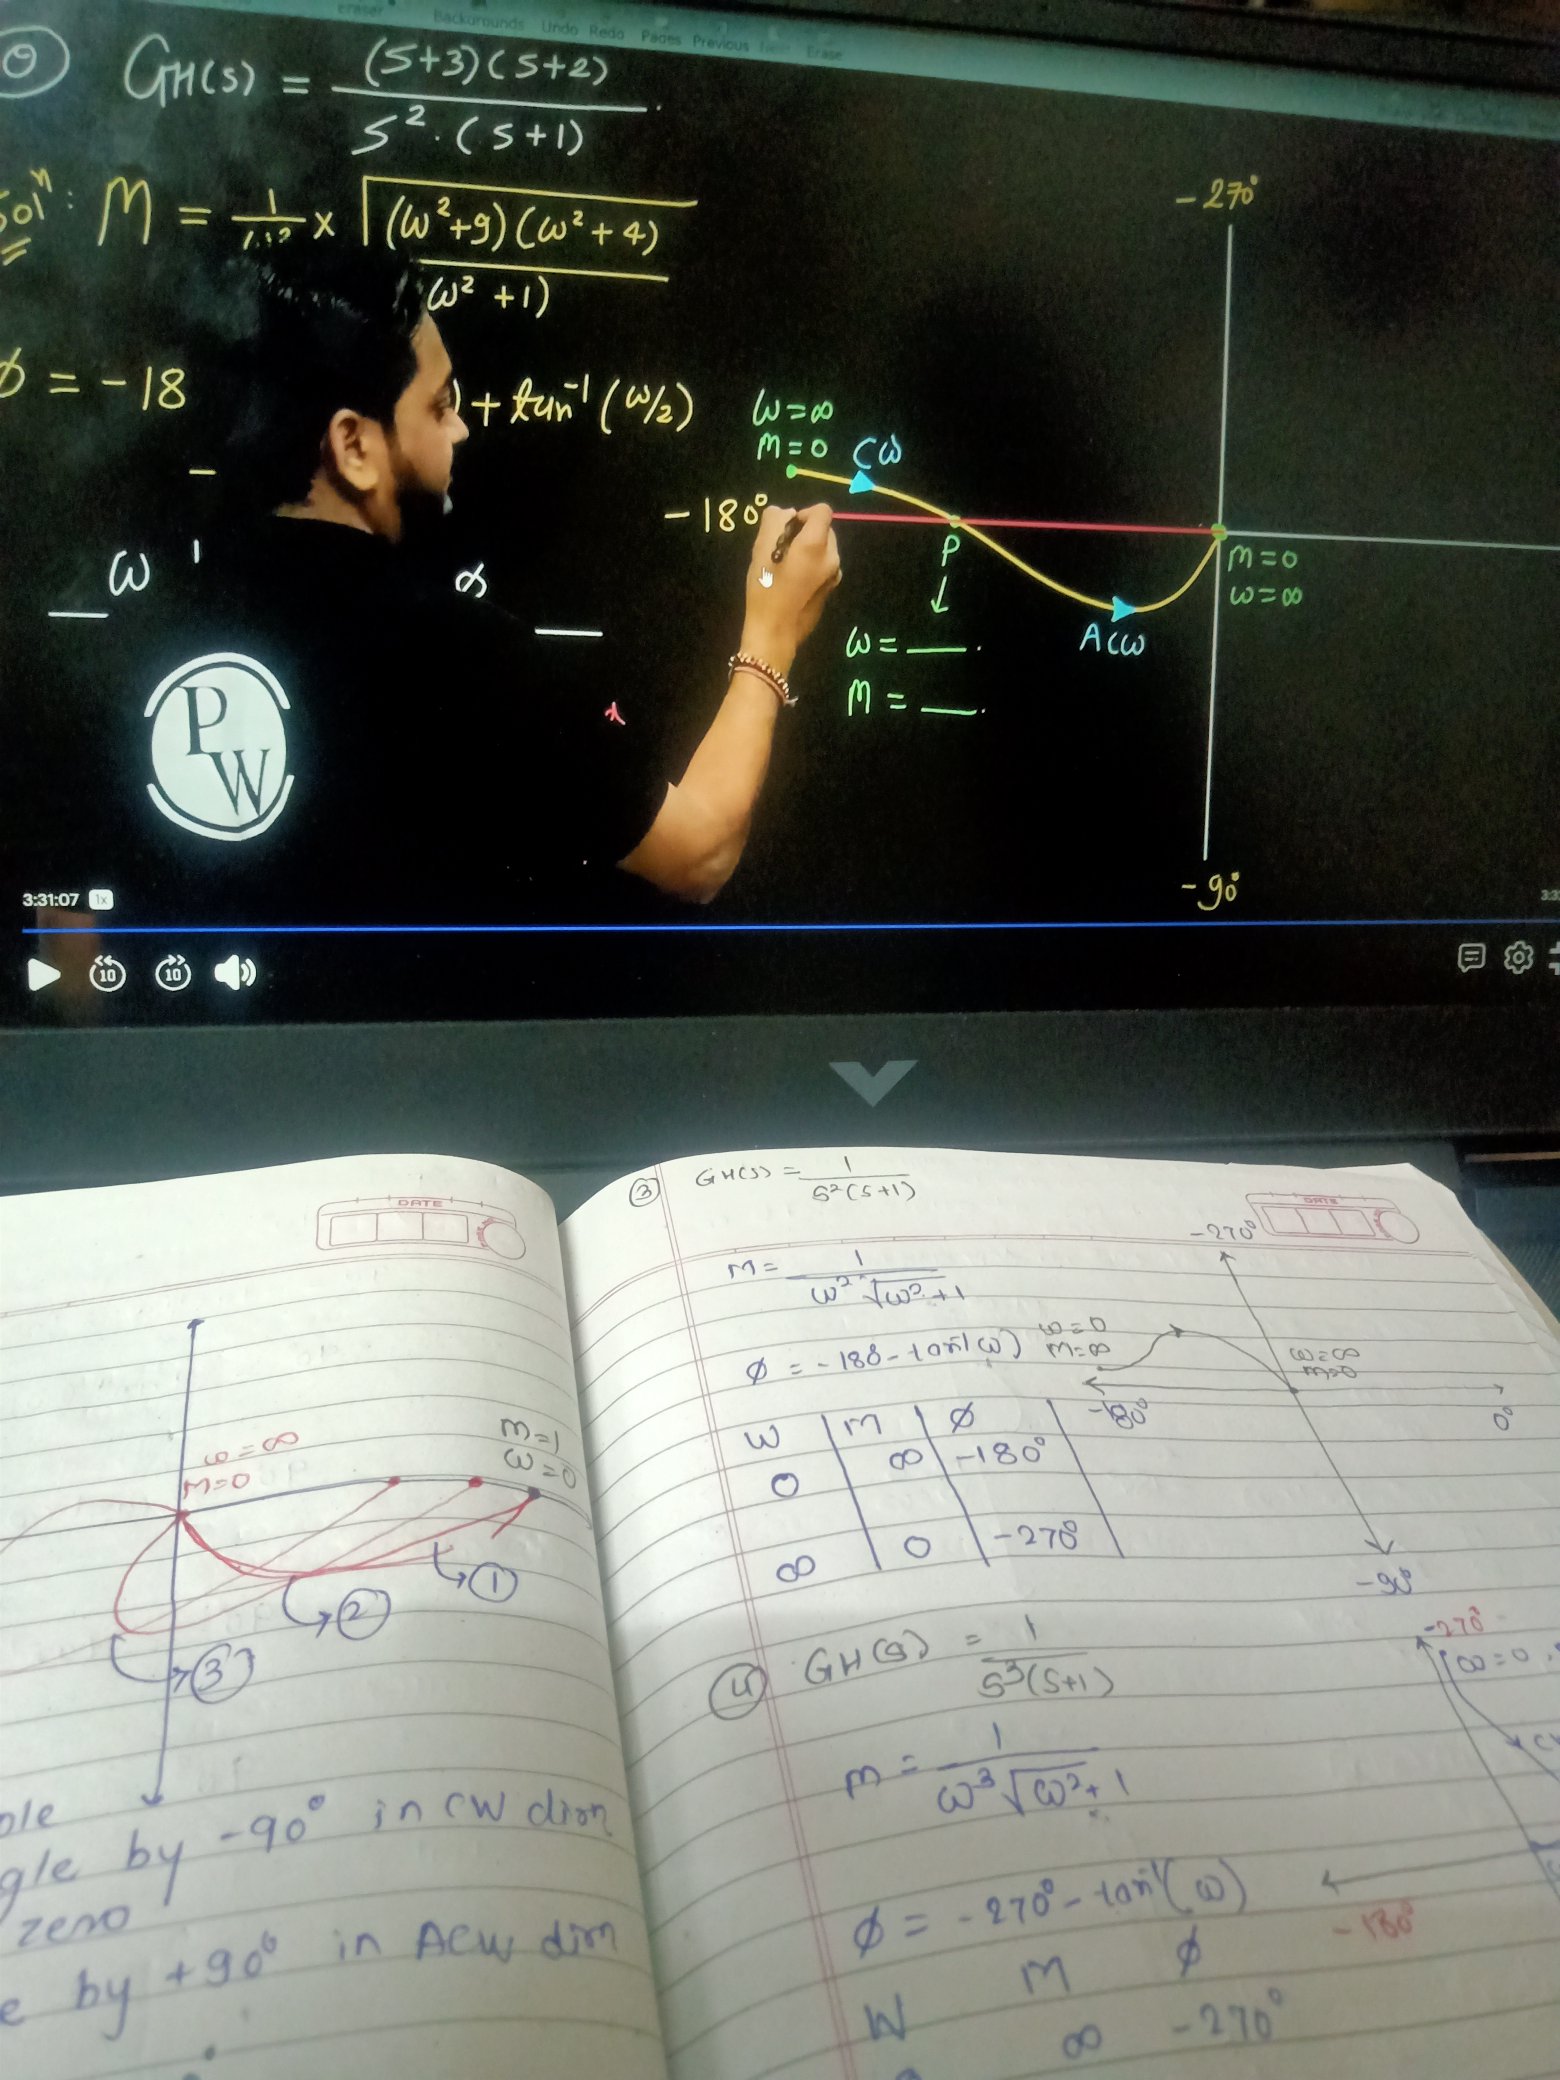 eraser Backgrounds Undo Redo Pages Previous Next Erase
GH(s) = (s+3)(s+2)
s². (s+1)
Solⁿ: M = 1/ω² × √(ω²+9)(ω²+4)
ω² +1)
ϕ = -18 ) + tan⁻¹(ω/2)
ω
∝
PW
-270°
ω=∞
M=0
CW
-180°
P
↓
ω = ___.
M = ___.
ACW
M=0
ω=∞
-90°
3:31:07 1x
10 10
DATE
ω=∞
M=0
M=1
ω=0
①
②
③
gle by -90° in CW dirn
zero
e by +90° in ACW dirn
③ GH(s) = 1
s²(s+1)
DATE
M = 1
ω²√ω²+1
ϕ = -180-tan⁻¹(ω)
ω M ϕ
0 ∞ -180°
∞ 0 -270°
-270°
ω=0
M=∞
ω=∞
M=0
-180°
0°
-90°
④ GH(s) = 1
s³(s+1)
M = 1
ω³√ω²+1
ϕ = -270°-tan⁻¹(ω)
ω M ϕ
∞ -270°
-270°
-180°